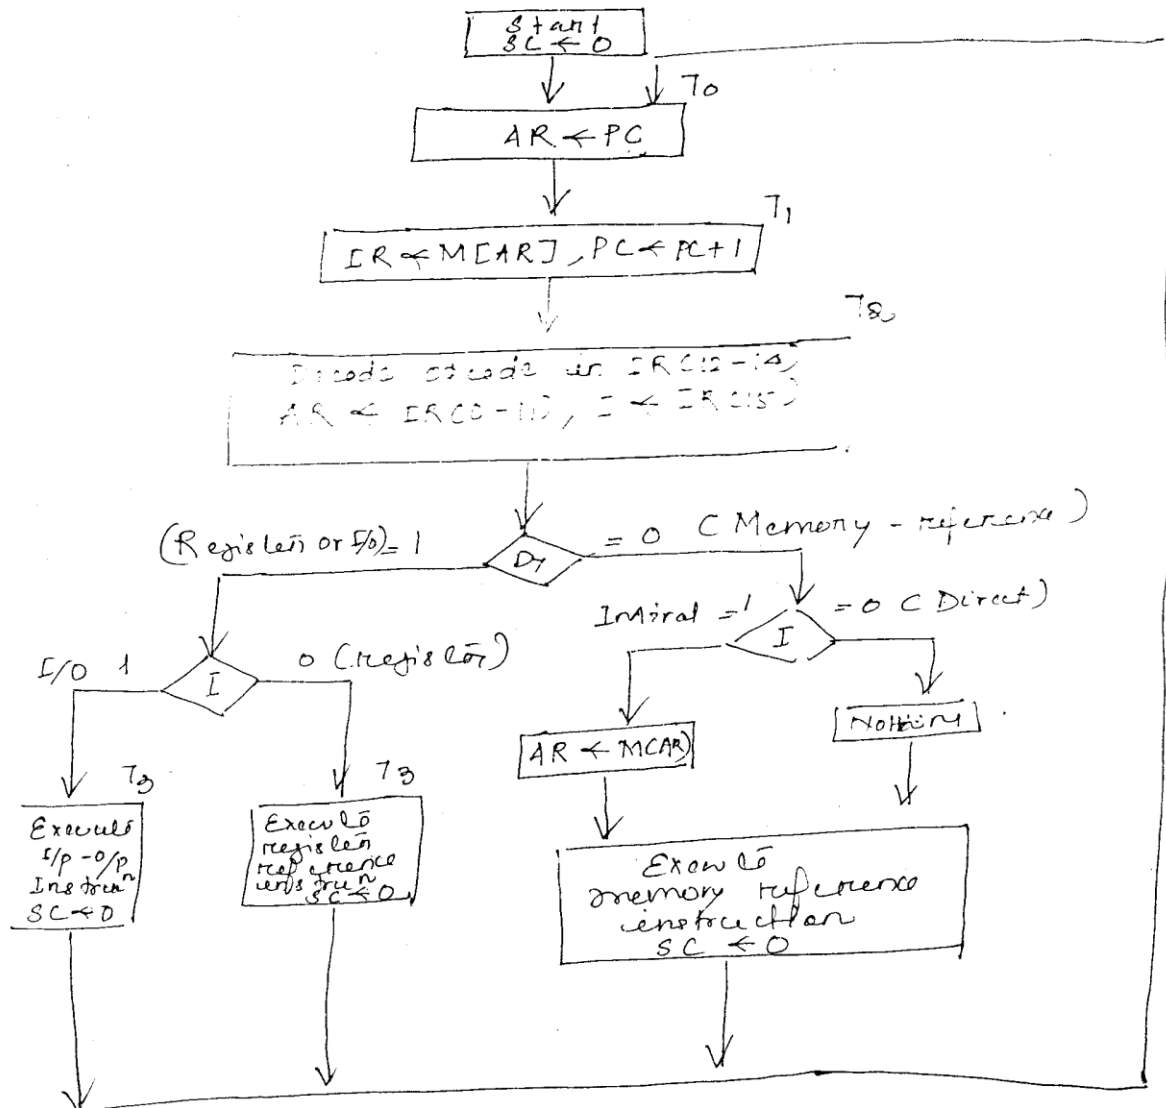 Start
SC ← 0
T0
AR ← PC
T1
IR ← M[AR], PC ← PC+1
T2
Decode opcode in IR(12-14)
AR ← IR(0-11), I ← IR(15)
(Register or I/O) = 1
D7
= 0 (Memory - reference)
= 1
I
= 0 (Direct)
I/O 1
I
0 (register)
AR ← M(AR)
Nothing
T3
T3
Execute
I/p - O/p
Instruⁿ
SC ← 0
Execute
register
reference
instruⁿ
SC ← 0
Execute
memory reference
instruction
SC ← 0